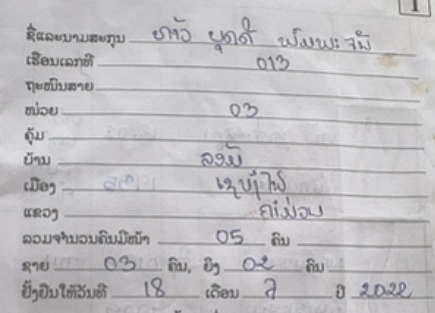 1
ຊື່ແລະນາມສະກຸນ ທ້າວ ບຸດດີ
ເຮືອນເລກທີ 013
ຖະໜົນສາຍ
ໜ່ວຍ 03
ຄຸ້ມ
ບ້ານ
ເມືອງ ເຊບັ້ງໄຟ
ແຂວງ ຄຳມ່ວນ
ລວມຈຳນວນຄົນມີໜ້າ 05 ຄົນ
ຊາຍ 03 ຄົນ, ຍິງ 02 ຄົນ
ຢັ້ງຢືນໃຫ້ວັນທີ 18 ເດືອນ 7 ປີ 2022